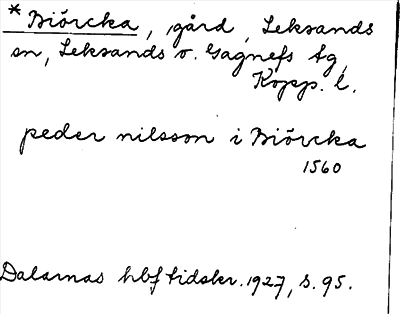 * Biörcka, gård, Leksands
sn, Leksands o. Gagnefs tg,
Kopp. l.
peder nilsson i Biörcka
1560
Dalarnas hbf tidskr. 1927, s. 95.